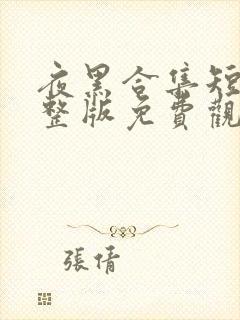 夜黑合集短
整版免費觀
張倩